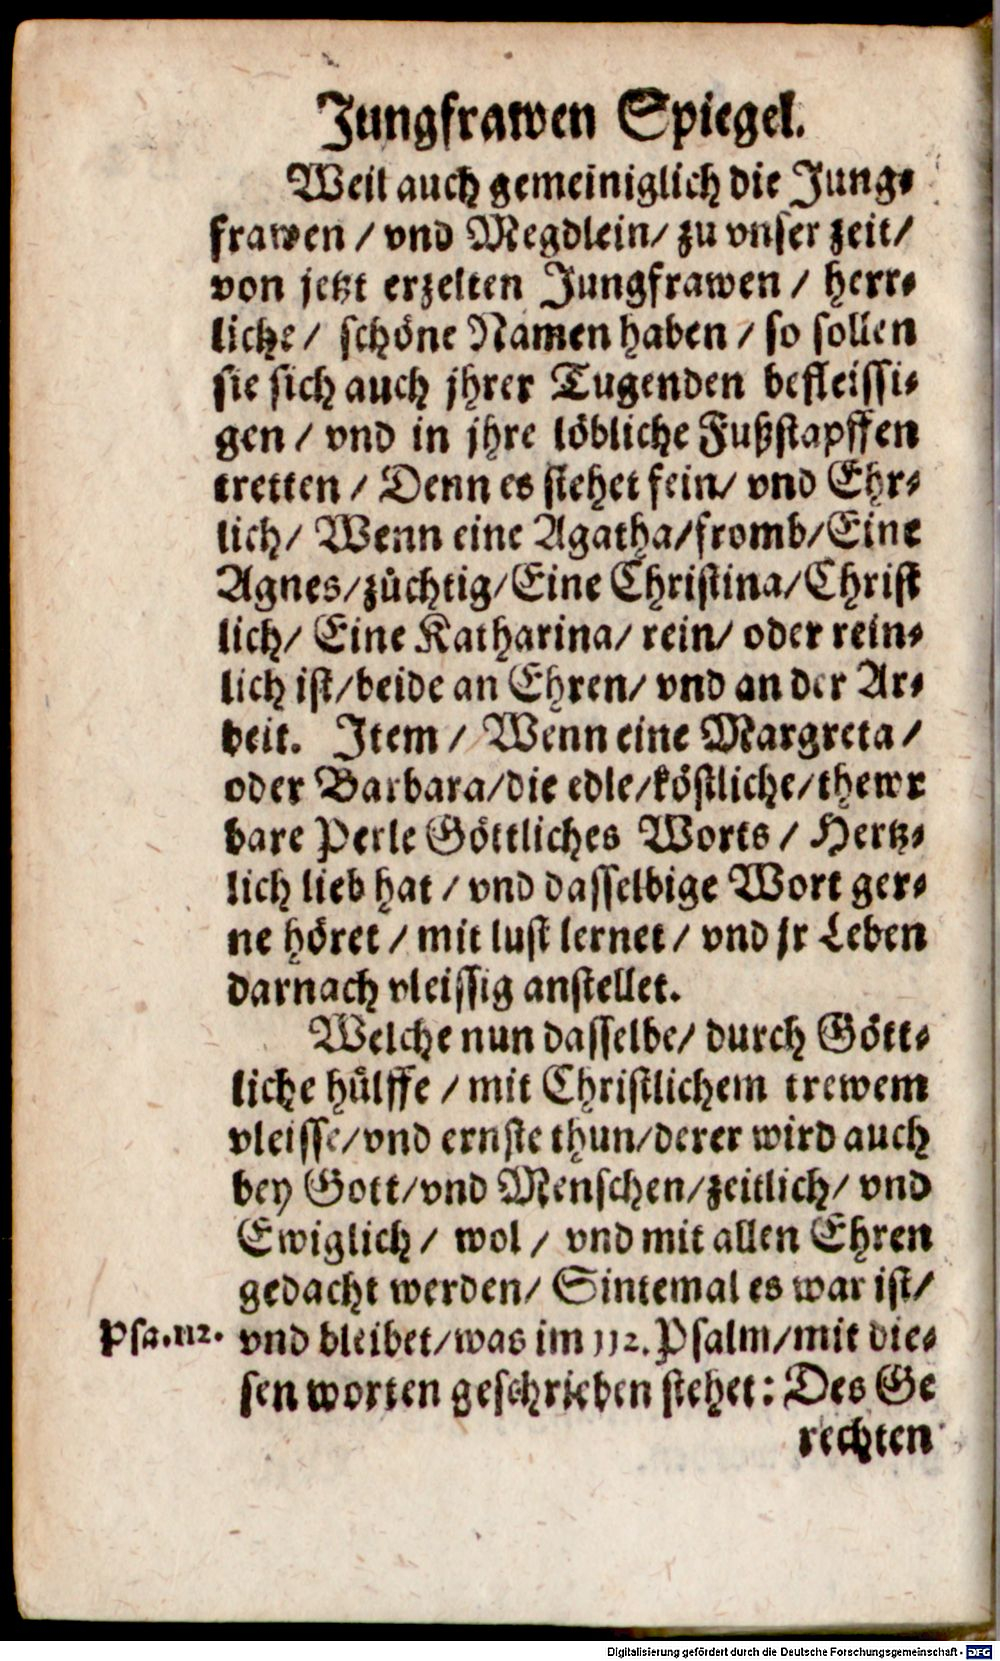 Jungfrawen Spiegel.
Weil auch gemeiniglich die Jung-
frawen / vnd Megdlein / zu vnser zeit /
von jetzt erzelten Jungfrawen / herr-
liche / schöne Namen haben / so sollen
sie sich auch jhrer Tugenden befleissi-
gen / vnd in jhre löbliche Fußstapffen
tretten / Denn es stehet fein / vnd Ehr-
lich / Wenn eine Agatha / fromb / Eine
Agnes / züchtig / Eine Christina / Christ
lich / Eine Katharina / rein / oder rein-
lich ist / beide an Ehren / vnd an der Ar-
beit. Item / Wenn eine Margreta /
oder Barbara / die edle / köstliche / thewr
bare Perle Göttliches Worts / Hertz-
lich lieb hat / vnd dasselbige Wort ger-
ne höret / mit lust lernet / vnd jr Leben
darnach vleissig anstellet.
Welche nun dasselbe / durch Gött-
liche hülffe / mit Christlichem trewem
vleisse / vnd ernste thun / derer wird auch
bey Gott / vnd Menschen / zeitlich / vnd
Ewiglich / wol / vnd mit allen Ehren
gedacht werden / Sintemal es war ist /
Psa.112. vnd bleibet / was im 112. Psalm / mit die-
sen worten geschrieben stehet: Des Ge
rechten
Digitalisierung gefördert durch die Deutsche Forschungsgemeinschaft - DFG